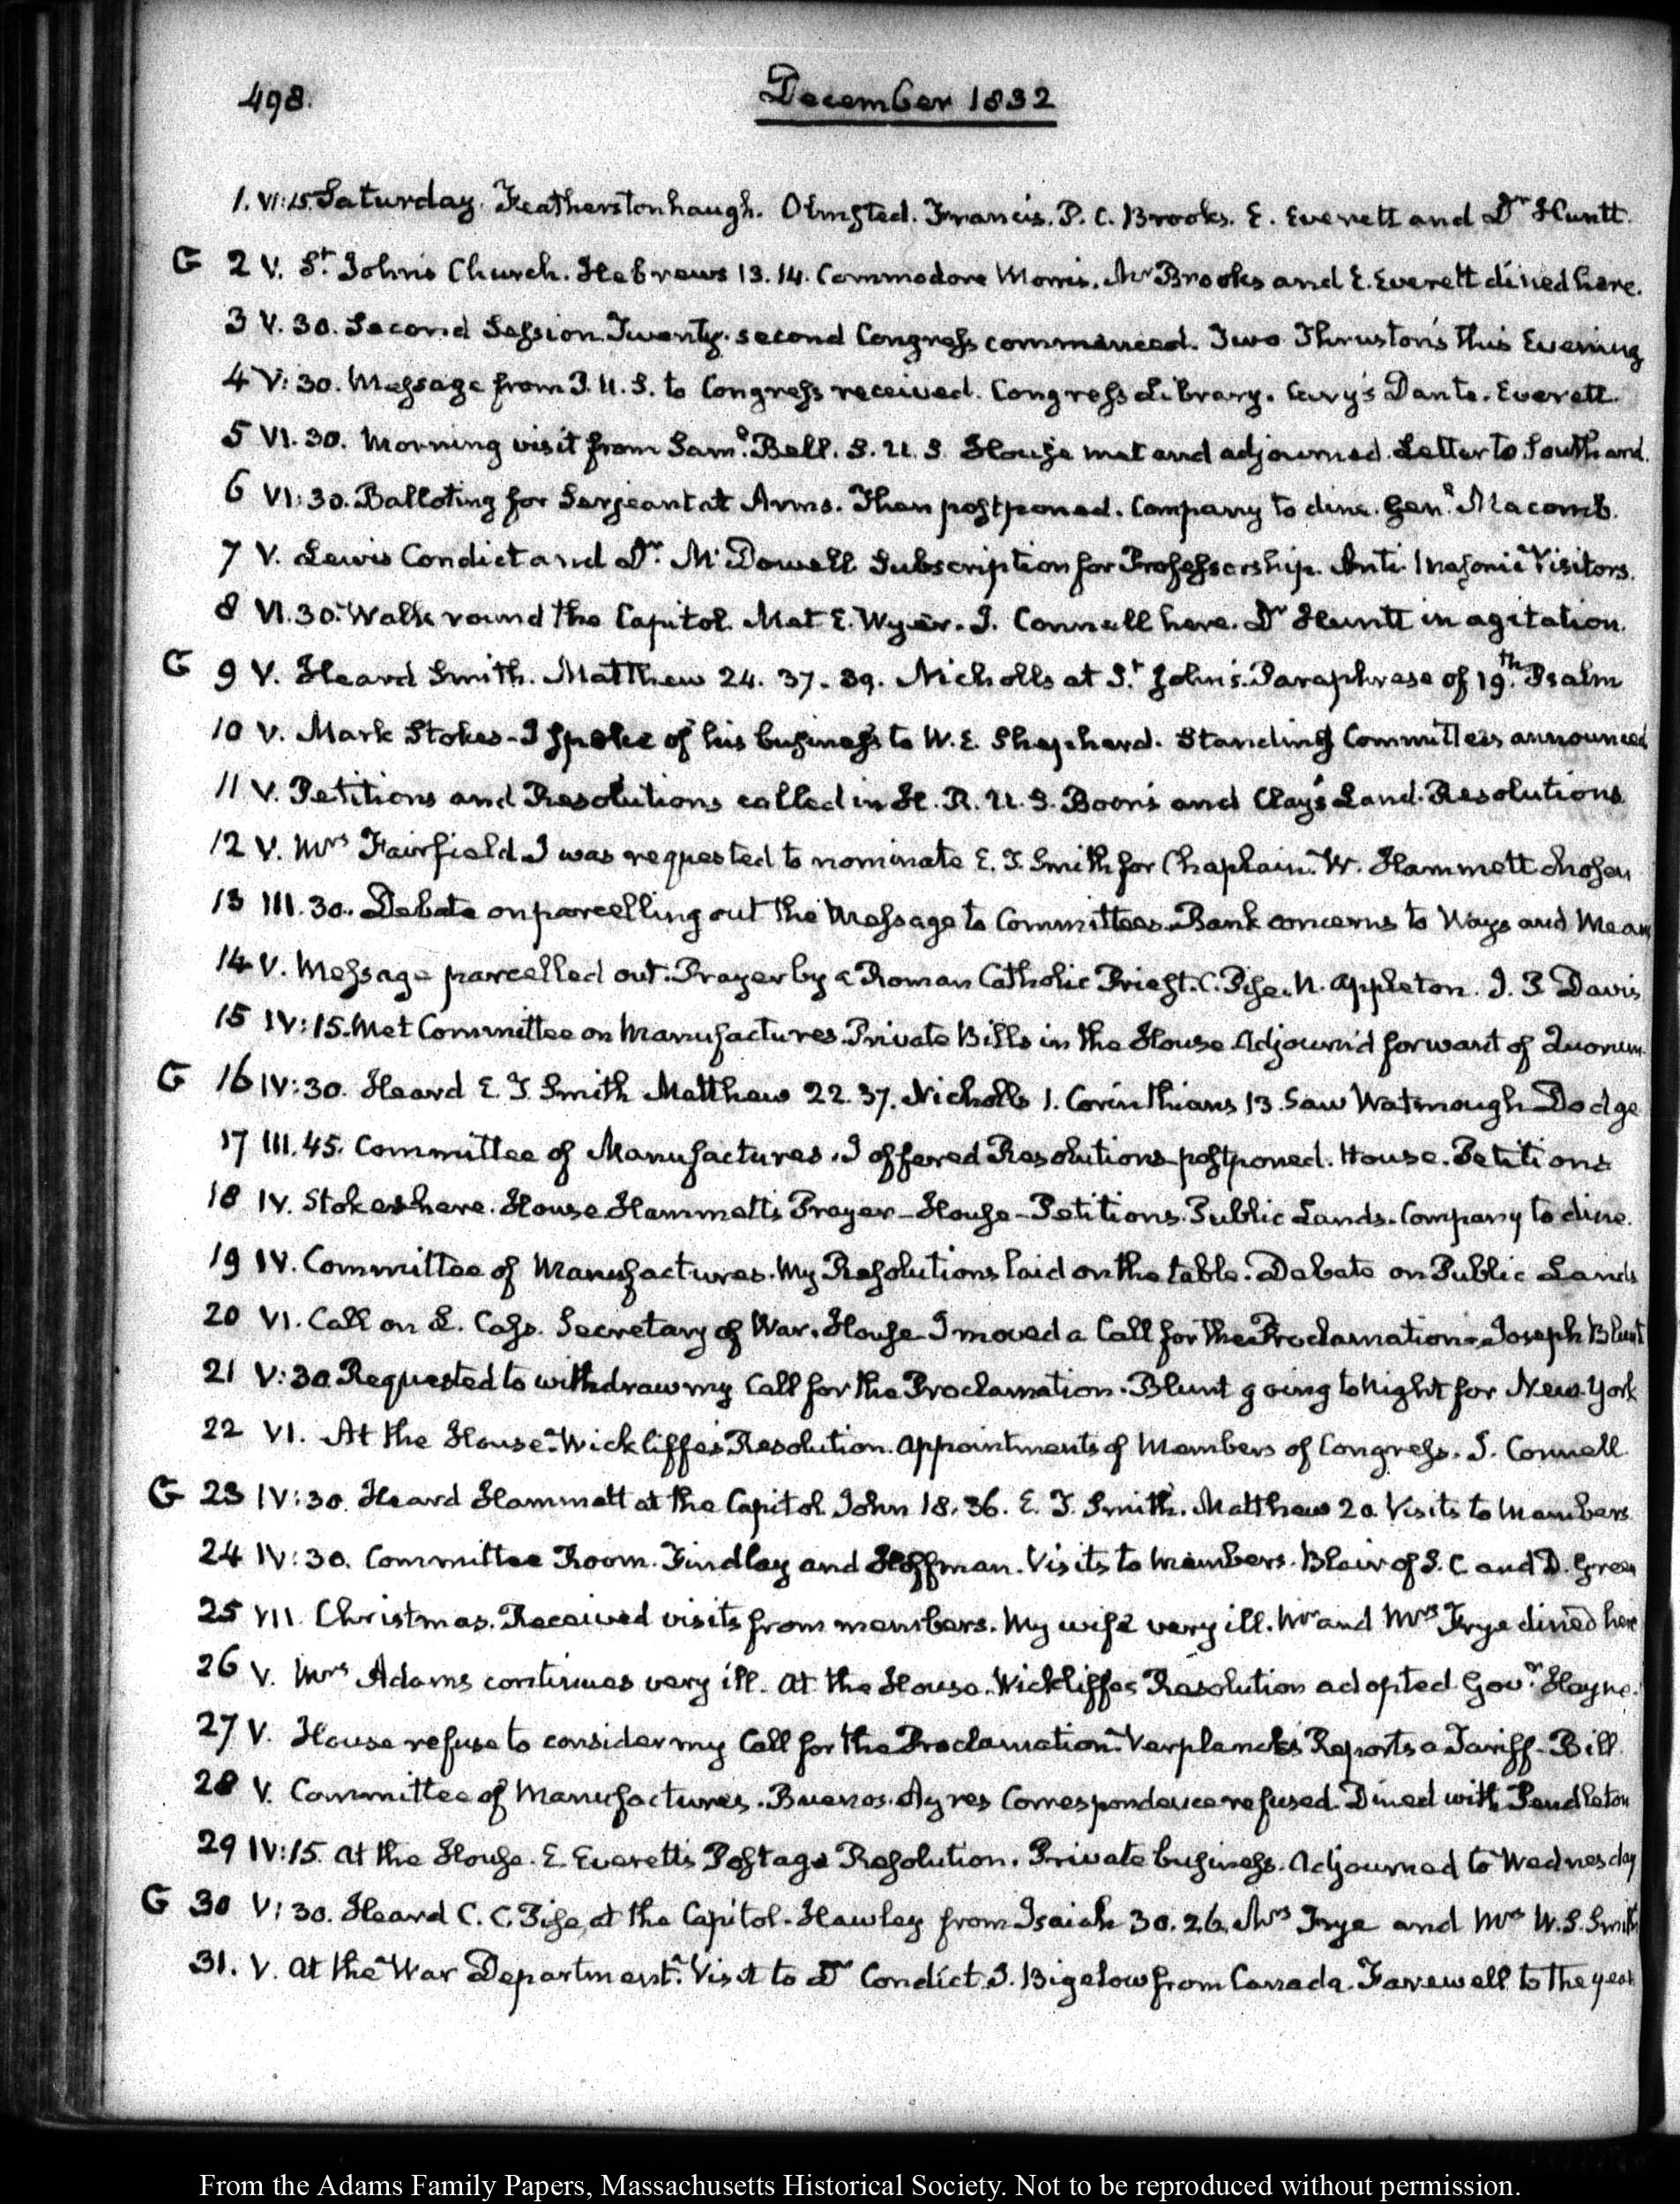 498.
December 1832
1. VI:15. Saturday. Featherstonhaugh. Olmsted. Francis. P. C. Brooks. E. Everett and Dr Huntt.
G 2 V. St Johns Church. Hebrews 13.14. Commodore Morris. Mr Brooks and E. Everett dined here.
3 V. 30. Second Session Twenty-second Congress commenced. Two Thruston's this Evening
4 V:30. Message from P. U. S. to Congress received. Congress Library. Cary's Dante. Everett.
5 VI. 30. Morning visit from Saml. Bell. S. U. S. House met and adjourned. Letter to Southard.
6 VI:30. Balloting for Serjeant at Arms. Then postponed. Company to dine. Genl. Macomb.
7 V. Lewis Condict and Dr. McDowell Subscription for Professorship. Anti Masonic Visitors.
8 VI.30. Walk round the Capitol. Met E. Wyer. J. Connell here. Dr Huntt in agitation.
G 9 V. Heard Smith. Matthew 24. 37-39. Nicholls at St John's. Paraphrase of 19th Psalm
10 V. Mark Stokes-I spoke of his business to W. E. Shepherd. Standing Committees announced
11 V. Petitions and Resolutions called in H. R. U. S. Boon's and Clay's Land Resolutions
12 V. Mrs Fairfield I was requested to nominate E. J. Smith for Chaplain. W. Hammett chosen
13 III. 30. Debate on parcelling out the Message to Committees. Bank concerns to Ways and Mean
14 V. Message parcelled out. Prayer by a Roman Catholic Priest. C. Pise. N. Appleton. J. P. Davis
15 IV:15. Met Committee on Manufactures. Private Bills in the House. Adjourn'd for want of Quorum
G 16 IV:30. Heard E. J. Smith Matthew 22. 37. Nicholls 1. Corinthians 13. Saw Watmough Dodge
17 III. 45. Committee of Manufactures. I offered Resolutions-postponed. House. Petitions
18 IV. Stokes here. House Hammetts Prayer-House-Petitions. Public Lands. Company to dine.
19 IV. Committee of Manufactures. My Resolutions laid on the table. Debate on Public Lands
20 VI. Call on L. Cass. Secretary of War. House I moved a Call for the Proclamation. Joseph Blunt
21 V:30. Requested to withdraw my Call for the Proclamation. Blunt going to Night for New-York
22 VI. At the House. Wickliffe's Resolution. Appointments of Members of Congress. J. Connell
G 23 IV:30. Heard Hammett at the Capitol John 18. 36. E. J. Smith. Matthew 20. Visits to Members
24 IV:30. Committee Room. Findlay and Hoffman. Visits to Members. Blair of S. C. and D. Green
25 VII. Christmas. Received visits from members. My wife very ill. Mr and Mrs Frye dined here
26 V. Mrs Adams continues very ill. At the House. Wickliffes Resolution adopted Govr. Hayne.
27 V. House refuse to consider my Call for the Proclamation. Verplancks Reports a Tariff-Bill.
28 V. Committee of Manufactures. Buenos-Ayres Correspondence refused. Dined with Pendleton
29 IV:15. At the House. E. Everett's Postage Resolution. Private business. Adjourned to Wednesday
G 30 V:30. Heard C. C. Pise, at the Capitol. Hawley from Isaiah 30.26. Mrs Frye and Mrs W. S. Smith
31. V. At the War Department. Visit to Dr Condict. J. Bigelow from Canada. Farewell to the year
From the Adams Family Papers, Massachusetts Historical Society. Not to be reproduced without permission.